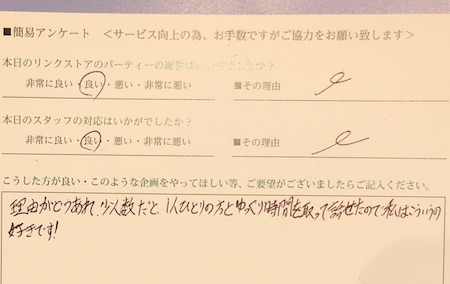 ■簡易アンケート ＜サービス向上の為、お手数ですがご協力をお願い致します＞
本日のリンクストアのパーティーの運営はいかがでしたか？
非常に良い・良い・悪い・非常に悪い ■その理由
本日のスタッフの対応はいかがでしたか？
非常に良い・良い・悪い・非常に悪い ■その理由
こうした方が良い・このような企画をやってほしい等、ご要望がございましたらご記入ください。
理由がどうあれ、少人数だと1人ひとりの方とゆっくり時間を取って話せたので私はこういうの
好きです!